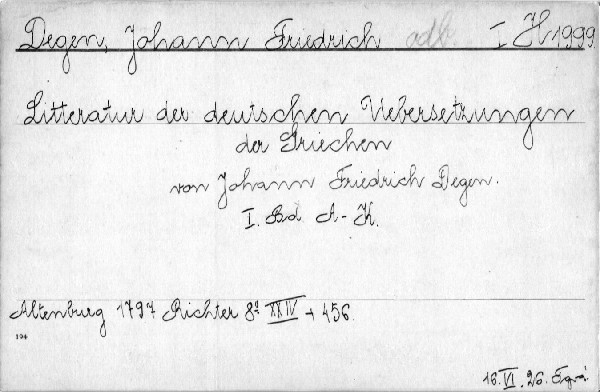 Degen, Johann Friedrich adb. I H 1999
Litteratur der deutschen Uebersetzungen
der Griechen
von Johann Friedrich Degen.
I. Bd. A - K.
Altenburg 1797 Richter 8° XXIV + 456.
194
16. VI. 26.